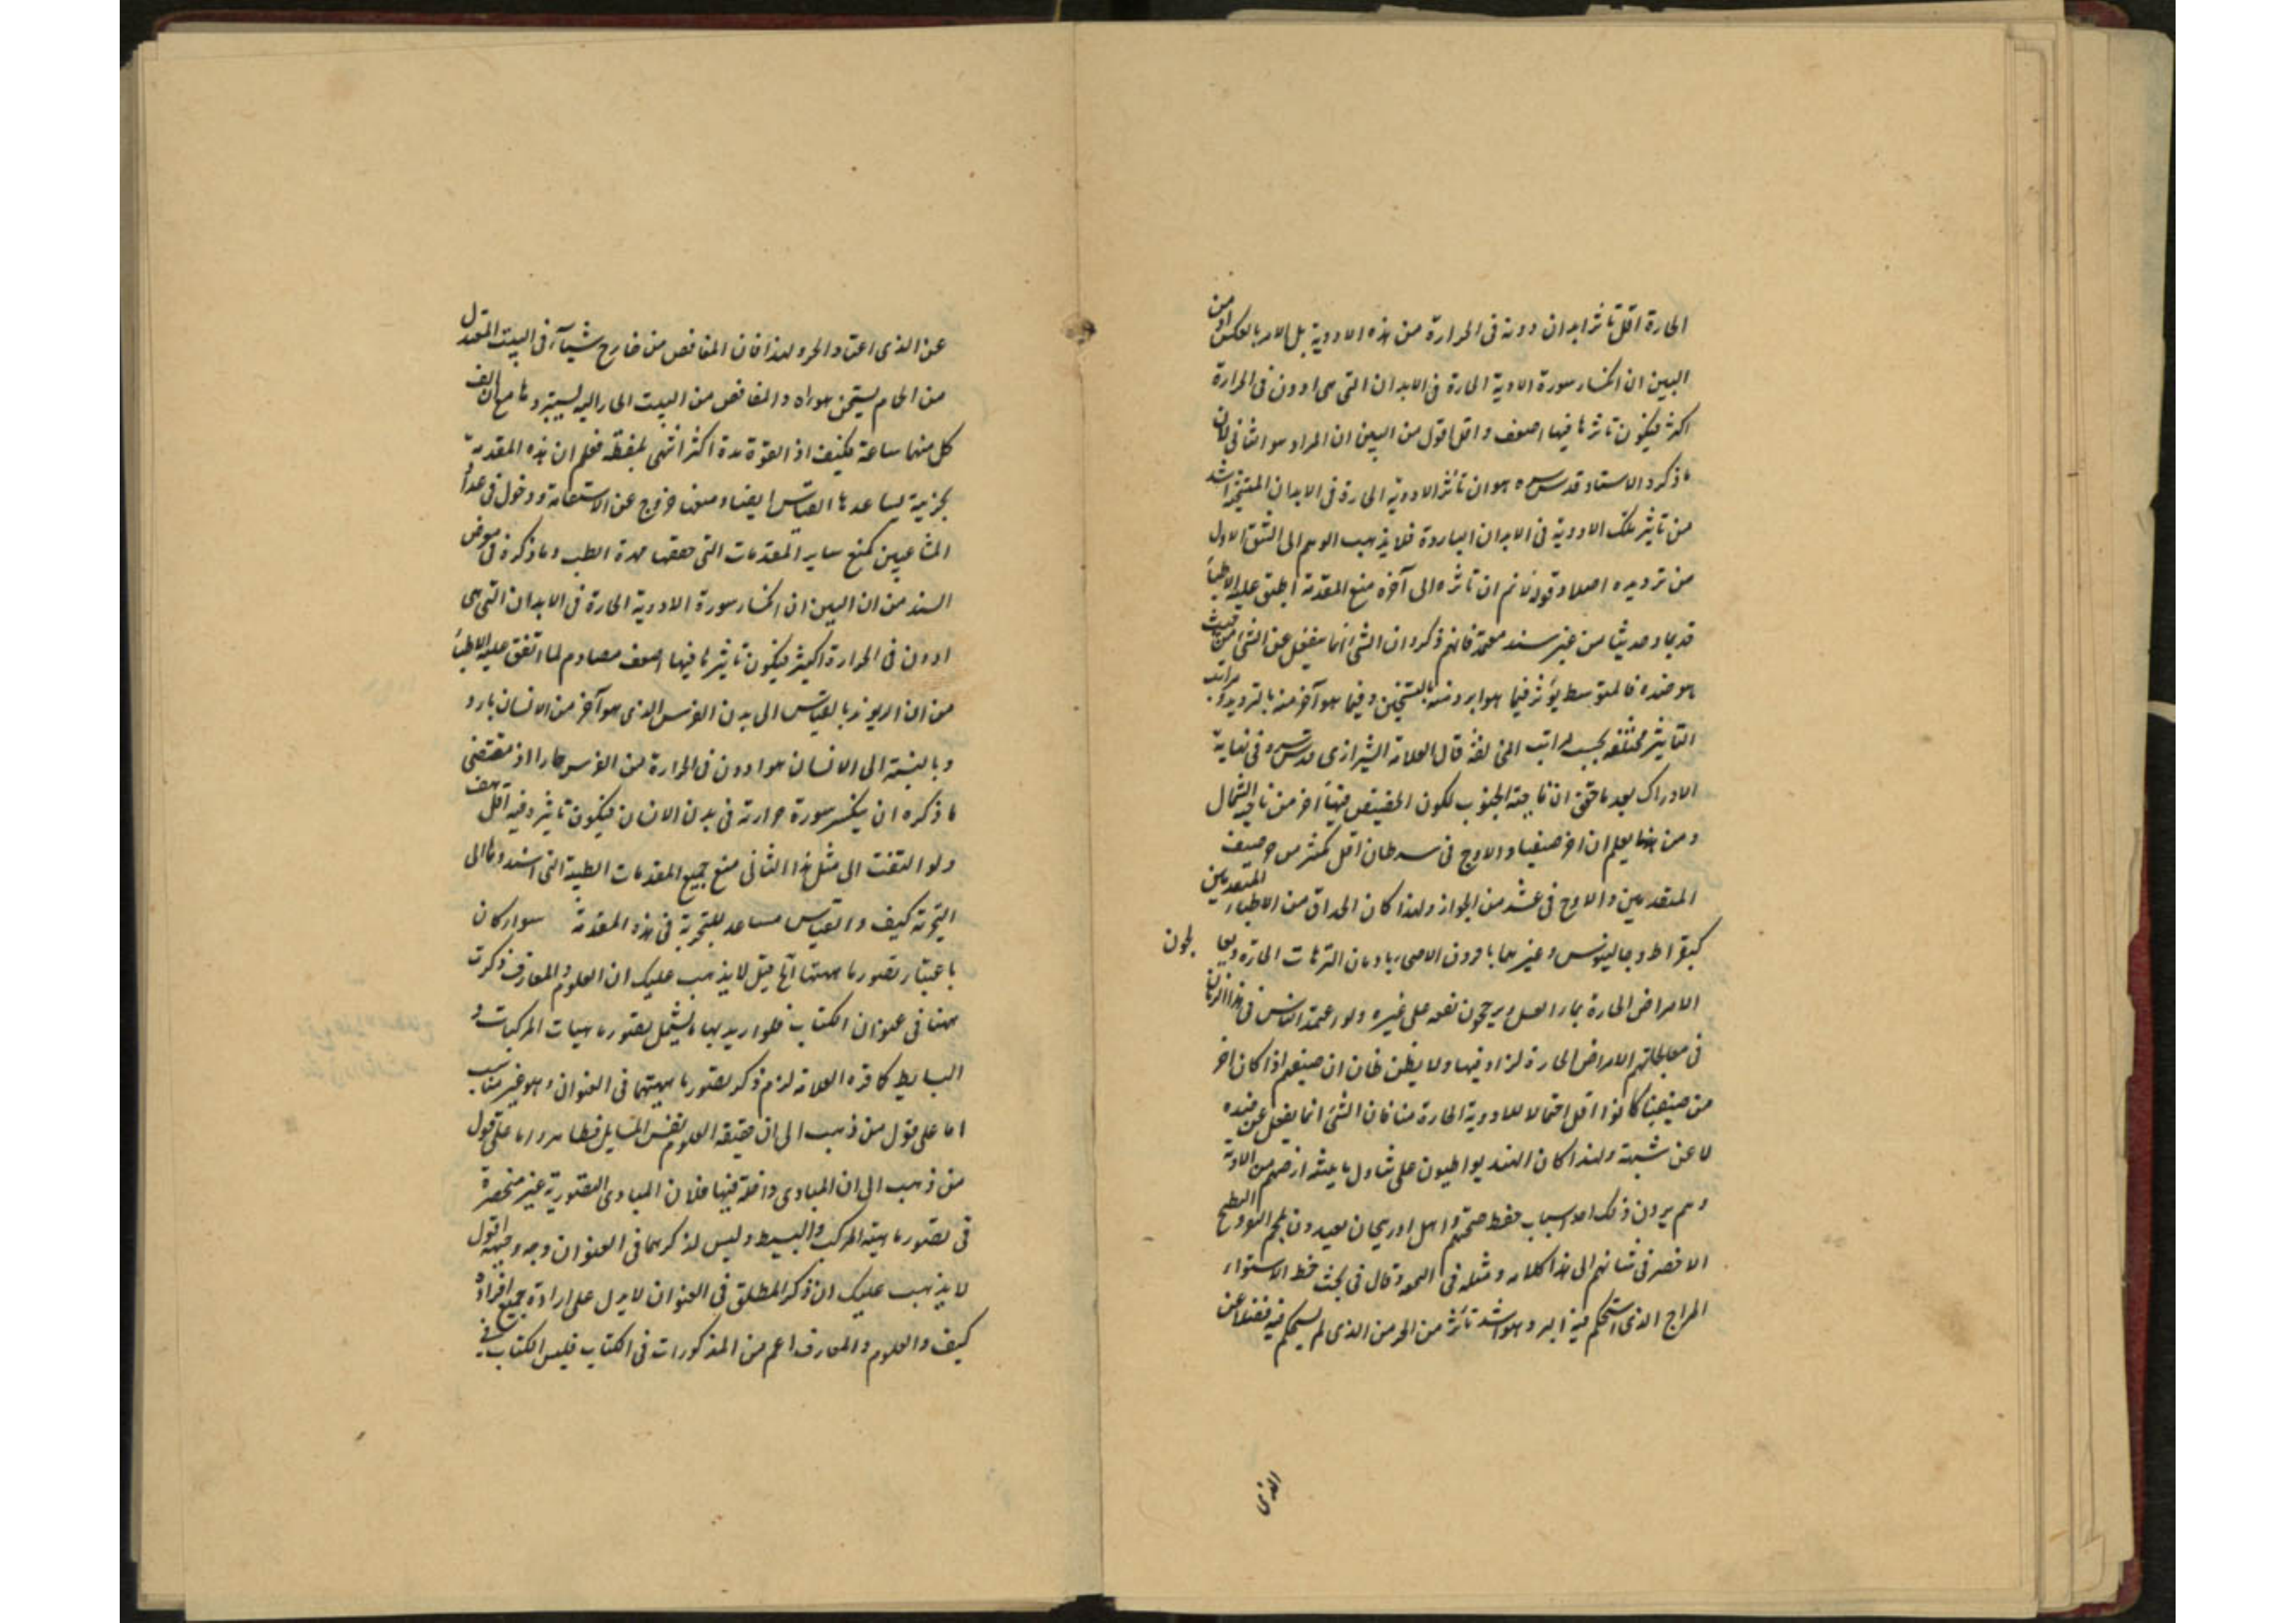 الحارة اقل تاثر ابدان دونه فى الحرارة من هذه الادوية بل الامر بالعكس اذ من
البين ان انكسار سورة الادوية الحارة فى الابدان التى هى ادون فى الحرارة
اكثر فيكون تاثرها فيها اضعف و اقل اقول من البين ان المراد هو الثانى لان
ما ذكره الاستاد قدس سره هو ان تأثر الادوية الحارة فى الابدان اشد
من تاثير تلك الادوية فى الابدان الباردة فلا يذهب الوهم الى الشق الاول
من ترديده اصلا و قوله لا نم ان تاثره الى آخره منع المقدمة اطبق عليه الاطباء
قديما و حديثا من غير سند معتمد فانهم ذكروا ان الشئ انما ينفعل عن الشئ من حيث
هو ضده فالمتوسط يؤثر فيما هو ابرد منه بالتسخين و فيما هو آخر منه بالتبريد و مراتب
التأثير مختلفة بحسب مراتب المخالفة قال العلامة الشيرازى قدس سره فى نهاية
الادراك بعد ما حقق ان ناحية الجنوب لكون الحضيض فيها احر من ناحية الشمال
و من هذا يعلم ان احر صيفنا و الاوج فى سرطان اقل كثير من حر صيف
المتقدمين و الاوج فى عشر من الجوزا و لهذا كان الحذاق من الاطباء المتقدمين
كبقراط و جالينوس و غيرهما يامرون الاصحاء بادمان الترياقات الحارة و يعالجون
الامراض الحارة بماء العسل و يرجحون نفعه على غيره و لو اعتمد الناس فى هذا الزمان
فى معالجاتهم الامراض الحارة لزاد فيها و لا يظن ظان ان صيفهم اذا كان احر
من صيفنا كانوا اقل احتمالا للادوية الحارة منا فان الشئ انما ينفعل عن ضده
لا عن شبهه و لهذا كان الهند يواظبون على تناول ما يعيشه ارضهم من الادوية
و هم يرون ذلك احد اسباب حفظ صحتهم و اهل
الاخضر فى شانهم الى هذا كلامه و مثله فى التحفة و قال فى بحث خط الاستواء
المزاج الذى استحكم فيه البرد هو اشد تأثرا من الحر من الذى لم يستحكم فيه فضلا عن
الذى
عن الذى اعتاد الحر و لهذا فان المغافص من خارج شتاء فى البيت المعتدل
من الحمام يستسخن هواه و المغافص من البيت الحار اليه يستبرده مع ان
كل منهما ساعة فكيف اذا القوة مدة اكثر انتهى بلفظه فعلم ان هذه المقدمة
تجربية يساعدها القياس ايضا و منعها خروج عن الاستقامة و دخول فى عداد
المشاغبين كمنع ساير المقدمات التى حققها مهرة الطب و ما ذكره فى معرض
السند من ان البين ان انكسار سورة الادوية الحارة فى الابدان التى هى
ادون فى الحرارة اكثر فيكون تاثيرها فيها اضعف مصادم لما اتفق عليه الاطباء
من ان الريوند بالقياس الى بدن الفرس الذى هو آخر من الانسان بارد
و بالنسبة الى الانسان هو ادون فى الحرارة من الفرس حار اذ مقتضى
ما ذكره ان ينكسر سورة حرارته فى بدن الانسان فيكون تاثيره فيه اقل هف
و لو التفت الى مثل هذا الثانى منع جميع المقدمات الطبية التى اسندوها الى
التجربة كيف و القياس مساعد للتجربة فى هذه المقدمة سواء كان
باعتبار تصور ماهيتها الخ قيل لا يذهب عليك ان العلوم و المعارف ذكرت
ههنا فى عنوان الكتاب فلو اريد بها ما يشمل تصور ماهيات المركبات و
البسايط كما قرره العلامة لزم ذكر تصور ماهيتهما فى العنوان و هو غير مناسب
اما على قول من ذهب الى ان حقيقة العلوم نفس المسايل فظاهر و اما على قول
من ذهب الى ان المبادى داخلة فيها فلان المبادى التصورية غير منحصرة
فى تصور ماهية المركب و البسيط و ليس لذكرهما فى العنوان وجه وجيه اقول
لا يذهب عليك ان ذكر المطلق فى العنوان لا يدل على ارادة جميع افراده
كيف و العلوم و المعارف اعم من المذكورات فى الكتاب فليس الكتاب فى